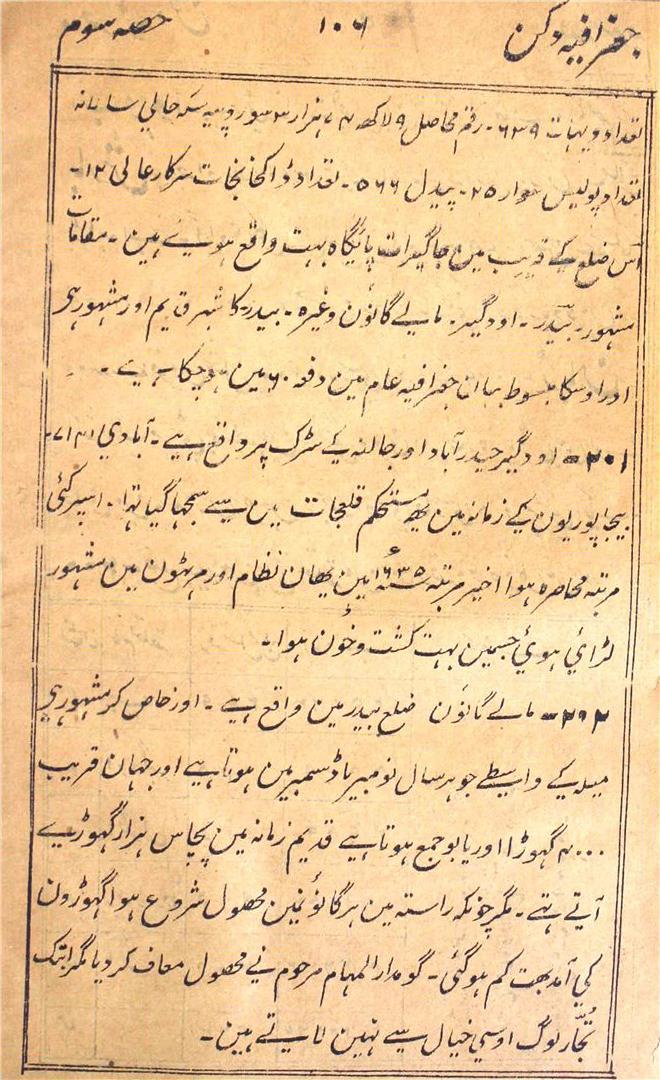 جغرافیہ دکن ۱۰۶ حصہ سوم
تعداد دیہات ۶۳۹ - رقم محاصل ۹ لاکھ ۷۴ ہزار ۳ سو روپیہ سکہ حالی سالانہ
تعداد پولیس سوار ۲۵ - پیدل ۵۶۶ - تعداد ڈاکخانجات سرکار عالی ۱۲ -
اس ضلع کے قریب مین جاگیرات پائیگاہ بہت واقع ہوے ہین - مقامات
مشہور - بیدر - اودگیر - مالے گانوُن وغیرہ - بیدر کا شہر قدیم اور مشہور ہی
اور اوسکا مبسوط بیان جغرافیہ عام مین دفعہ ۶۰ مین ہوچکا ہے -
۲۰۱ - اودگیر حیدرآباد اور جالنہ کے سڑک پر واقع ہے - آبادی ۷۱۴۱ -
بیجاپوریون کے زمانہ مین یہ مستحکم قلعجات مین سے سمجہا گیا تہا - اسپر کئی
مرتبہ محاصرہ ہوا اخیر مرتبہ سنہ ۱۶۳۵ء مین یہان نظام اور مرہٹون مین مشہور
لڑائي ہوئي جسمین بہت کشت و خُون ہوا -
۲۰۲ - مالے گانوُن ضلع بیدر مین واقع ہے - اور خاص کر مشہور ہی
میلہ کے واسطے جو ہر سال نومبر یا ڈسمبر مین ہوتا ہے اور جہان قریب
۴۰۰۰ گہوڑا اور یابو جمع ہوتا ہے قدیم زمانہ مین پچاس ہزار گہوڑے
آتے تہے - مگر چونکہ راستہ مین ہر گانوُنمین محصول شروع ہوا گہوڑون
کي آمد بہت کم ہوگئی - گو مدارالمہام مرحوم نے محصول معاف کردیا مگر ابتک
تُجّار لوگ اوسی خیال سے نہین لاتے ہین -